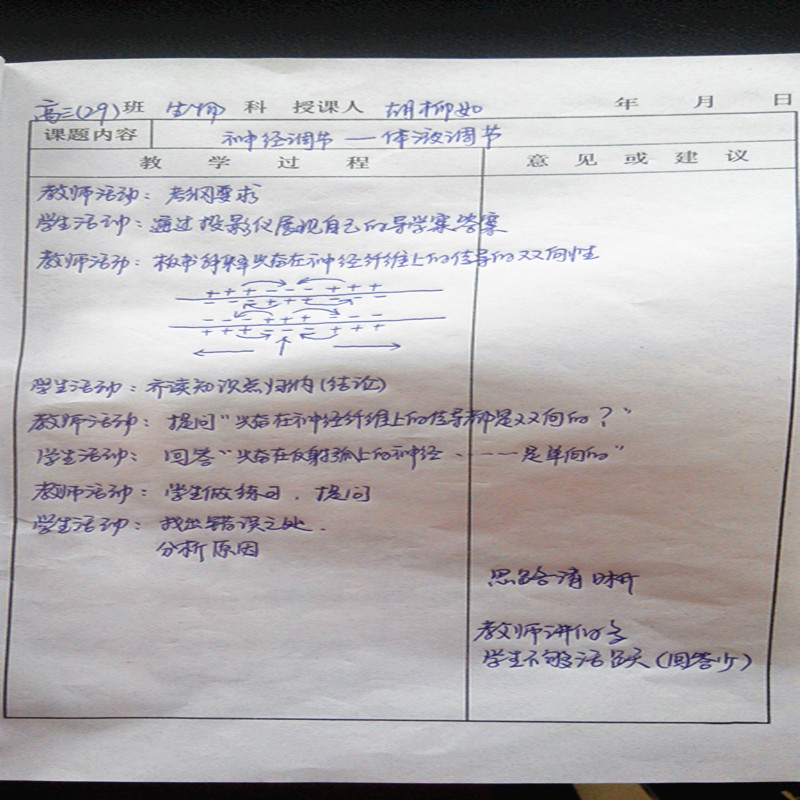 高三(29)班 生物 科 授课人 胡柳如 年 月 日
课题内容 神经调节 — 体液调节
教 学 过 程 意 见 或 建 议
教师活动：考纲要求
学生活动：通过投影仪展现自己的导学案答案
教师活动：板书解释兴奋在神经纤维上的传导的双向性
+ + + - - - + + +
- - - + + + - - -
- - - + + + - - -
+ + + - - - + + +
学生活动：齐读知识点归纳(结论)
教师活动：提问"兴奋在神经纤维上的传导都是双向的？"
学生活动：回答"兴奋在反射弧上的神经……是单向的"
教师活动：学生做练习，提问
学生活动：找出错误之处.
分析原因
思路清晰
教师讲的多
学生不够活跃(回答少)